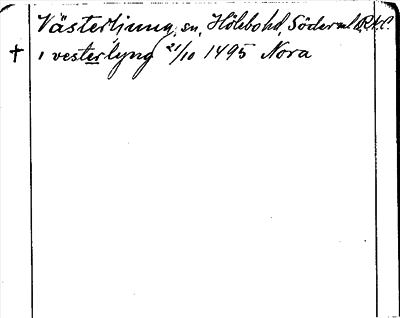 Västerljung, sn, Hölebo hd, Söderml.
† i vesterlyng 21/10 1495 Nora